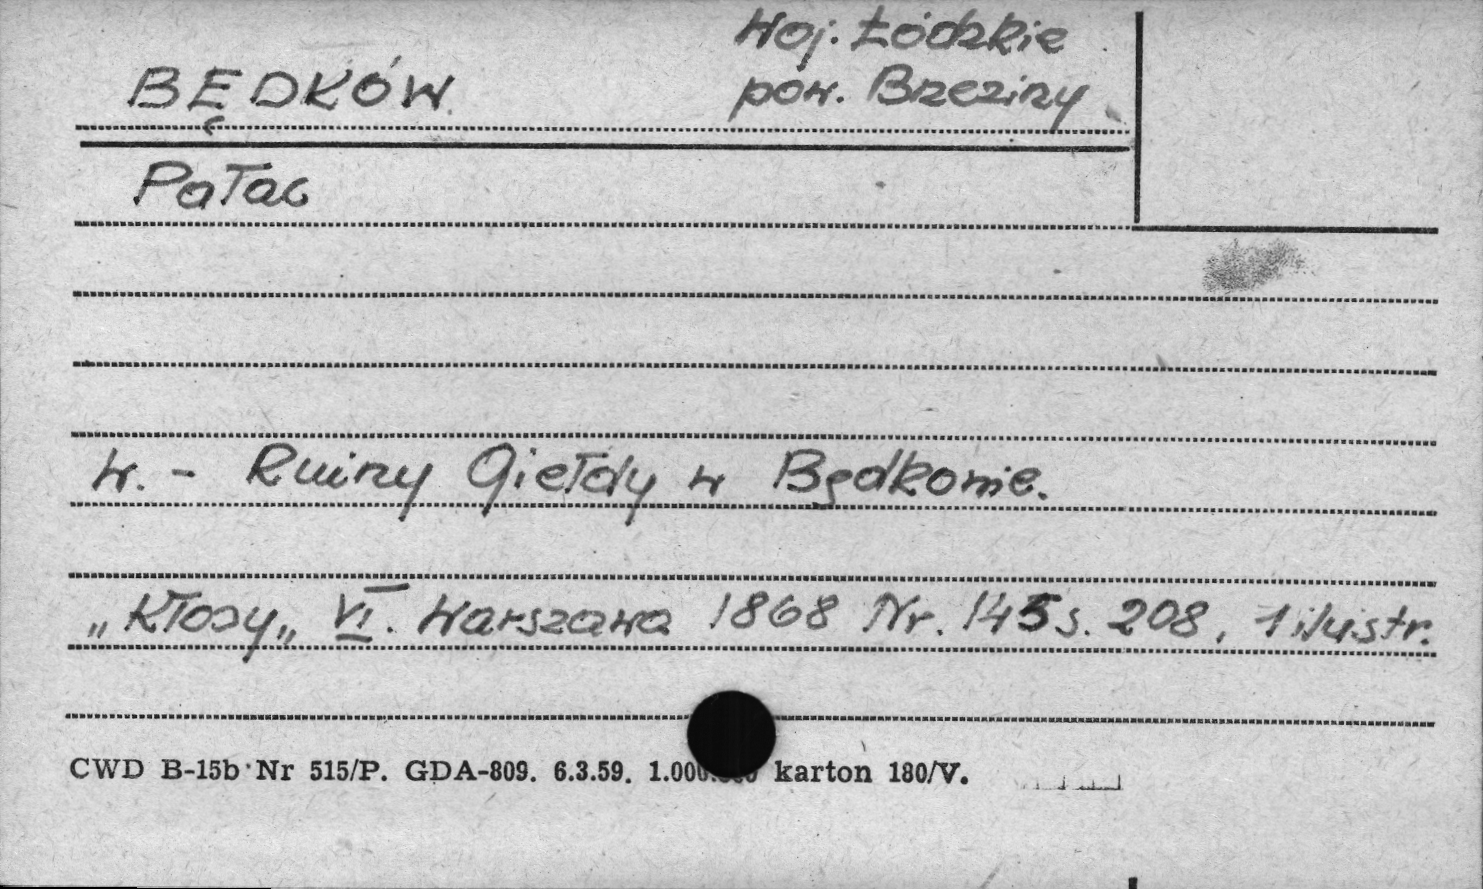 BĘDKÓW
Woj. Łódzkie
pow. Brzeziny
Pałac
W. - Ruiny Giełdy w Będkowie.
„Kłosy„ VI. Warszawa 1868 Nr. 145 s. 208, 1 ilustr.
CWD B-15b Nr 515/P. GDA-809. 6.3.59. karton 180/V.